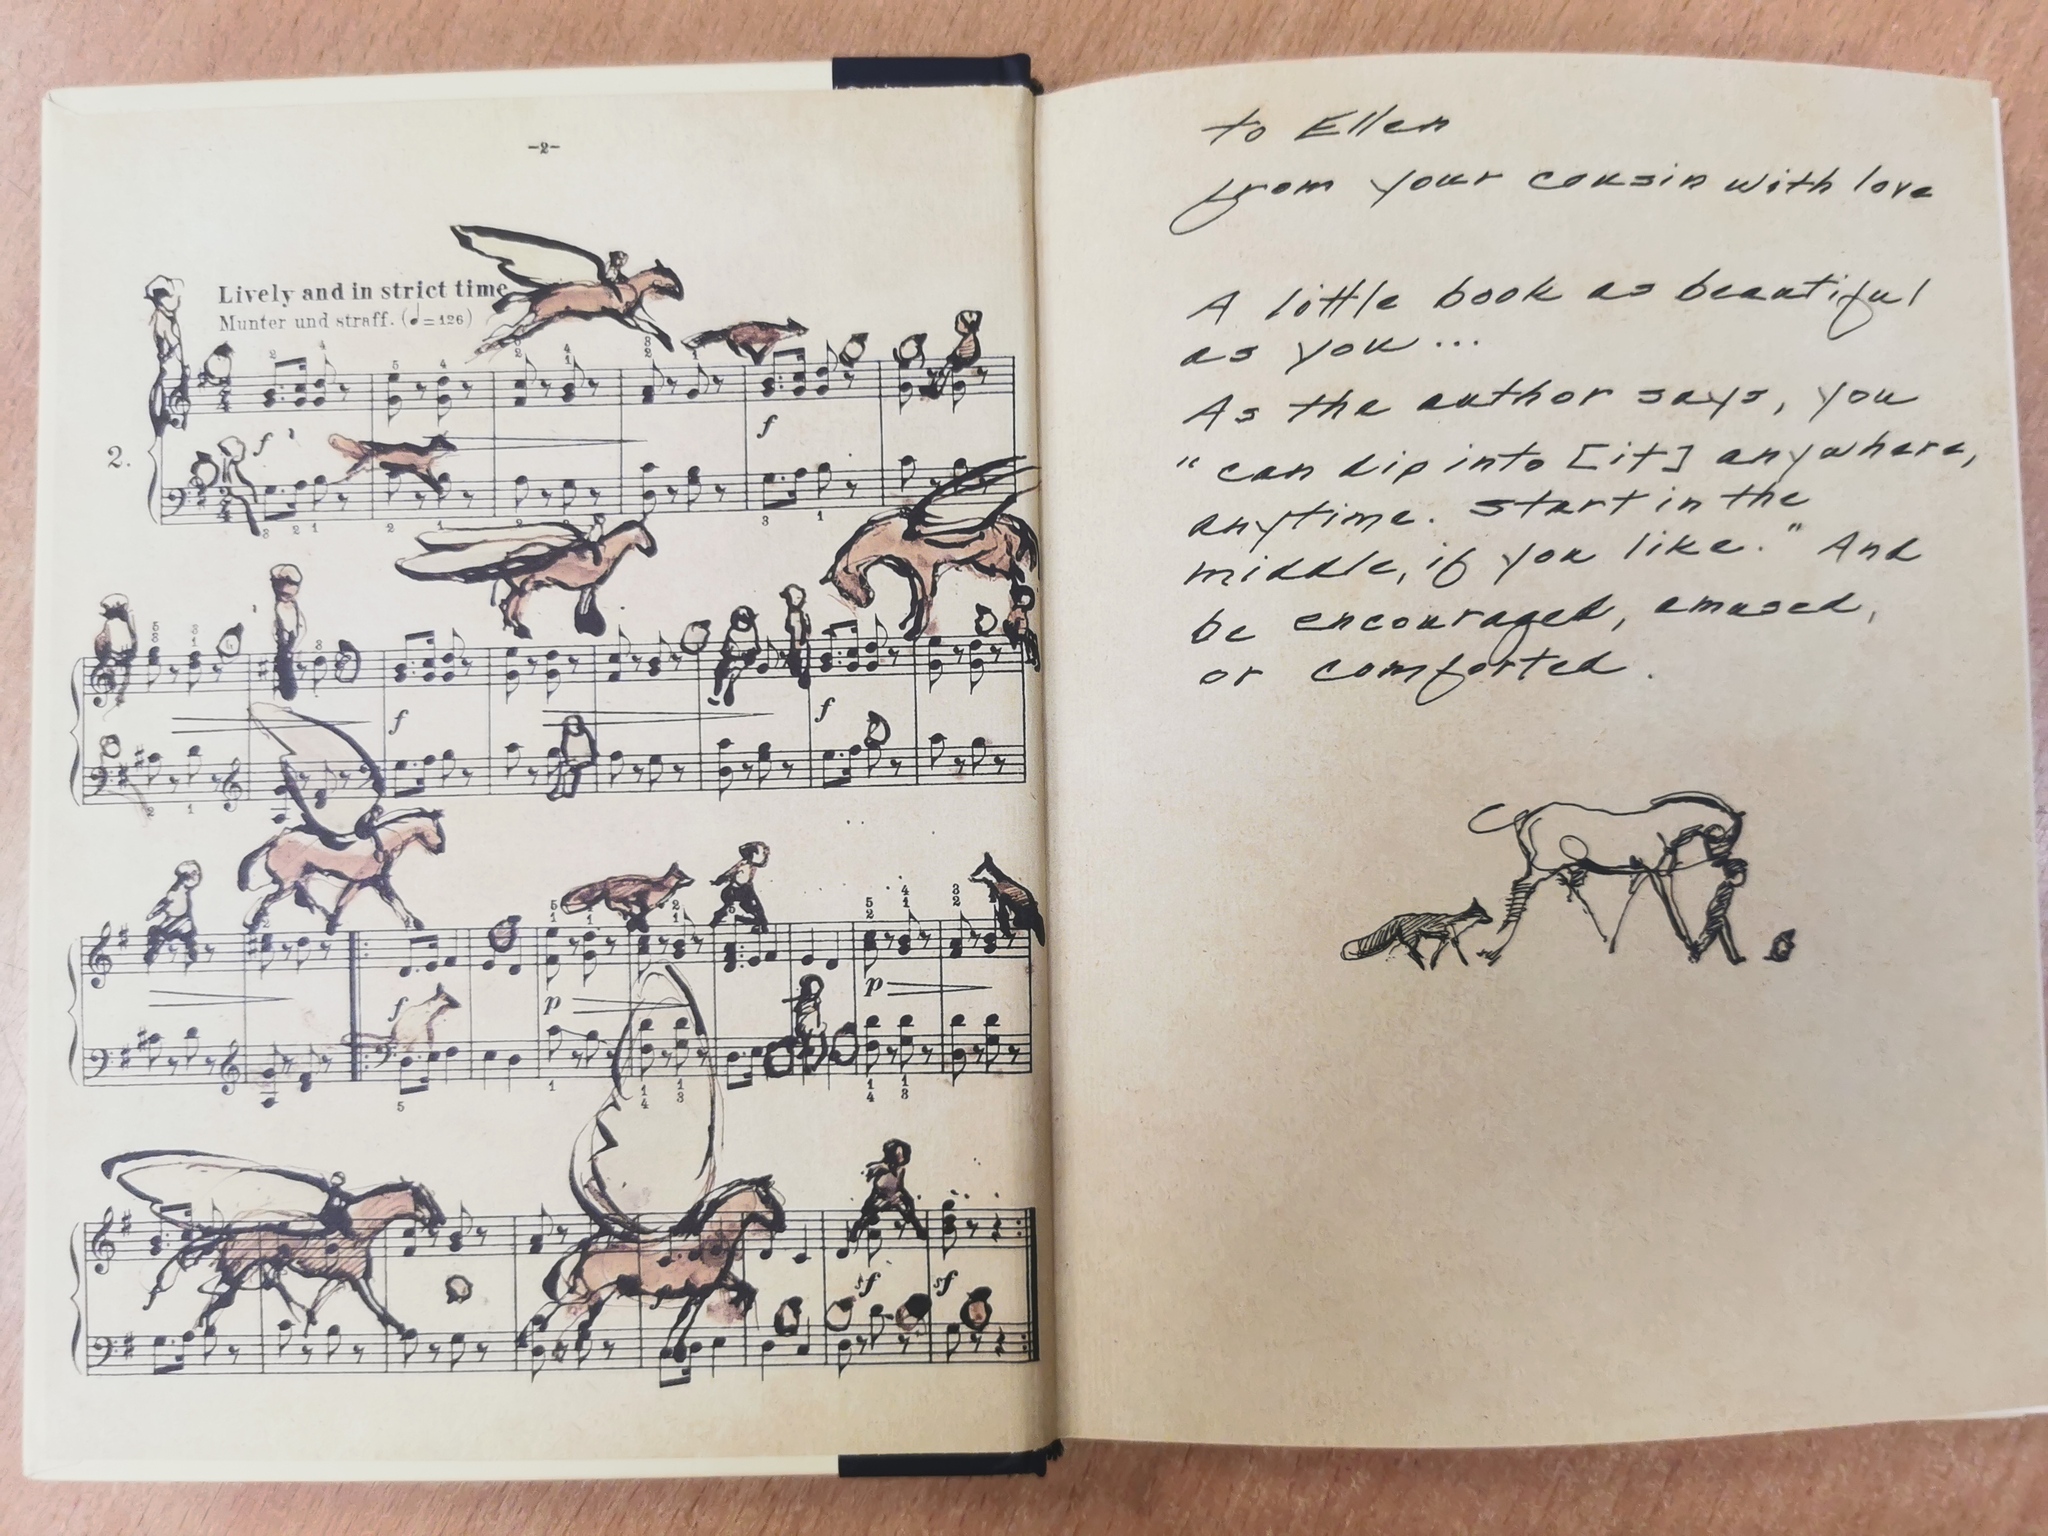 -2-
Lively and in strict time
Munter und straff. (♩=126)
2.
to Ellen
from your cousin with love
A little book as beautiful
as you...
As the author says, you
"can dip into [it] anywhere,
anytime. Start in the
middle, if you like." And
be encouraged, amused,
or comforted.